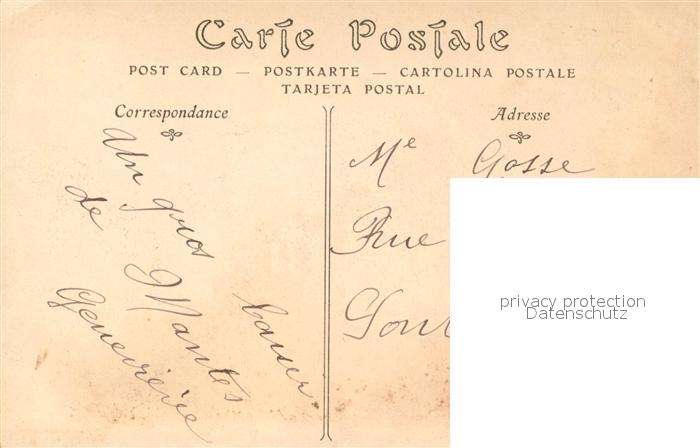 Carte Postale
POST CARD — POSTKARTE — CARTOLINA POSTALE
TARJETA POSTAL
Correspondance
Un gros baiser
de Nantes
Geneviève
Adresse
Me Gosse
Rue
privacy protection
Datenschutz